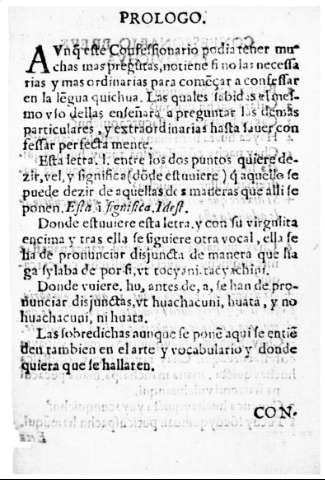 PROLOGO.
AVnq̃ este Confessionario podia tener mu-
chas mas pregũtas, no tiene si no las necessa
rias y mas ordinarias para comẽçar a confessar
en la lẽgua quichua. Las quales sabidas el mes-
mo vso dellas enseñara a preguntar las demas
particulares, y extraordinarias hasta sauer con
fessar perfectamente.
Esta letra. l. entre los dos puntos quiere de-
zir, vel, y significa (dõde estuuiere) q̃ aquello se
puede dezir de aquellas dos maderas que alli se
ponen. Esta i significa. Idest.
Donde estuuiere esta letra, y con su virgulita
encima y tras ella se siguiere otra vocal, ella se
ha de pronunciar disjuncta de manera que ha
ga sylaba de por si, vt tocyani. tacyachini.
Donde vuiere. hu, antes de, a, se han de pro-
nunciar disjunctas, vt huachacuni, huata, y no
huachacuni, ni huata.
Las sobredichas aunque se ponẽ aqui se entiẽ
den tambien en el arte y vocabulario y donde
quiera que se hallaren.
CON-